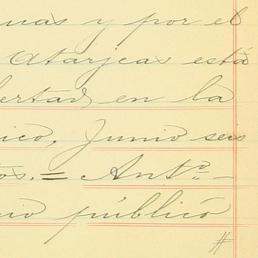 nas y por el
Atarjeas está
bertad en la
ico, Junio seis
os. = Ant.º =
io público
#